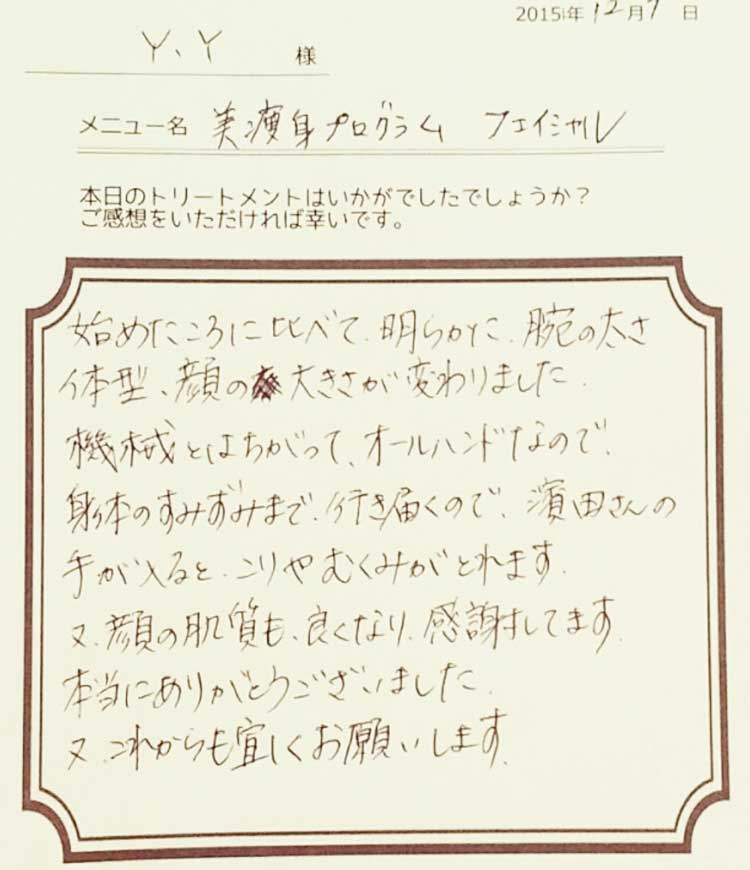 2015年12月7日
Y、Y 様
メニュー名 美痩身プログラム フェイシャル
本日のトリートメントはいかがでしたでしょうか？
ご感想をいただければ幸いです。
始めたころに比べて、明らかに、腕の太さ
体型、顔の大きさが変わりました。
機械とはちがって、オールハンドなので、
身体のすみずみまで、行き届くので、濱田さんの
手が入ると、こりやむくみがとれます。
又、顔の肌質も、良くなり、感謝してます。
本当にありがとうございました。
又、これからも宜しくお願いします。